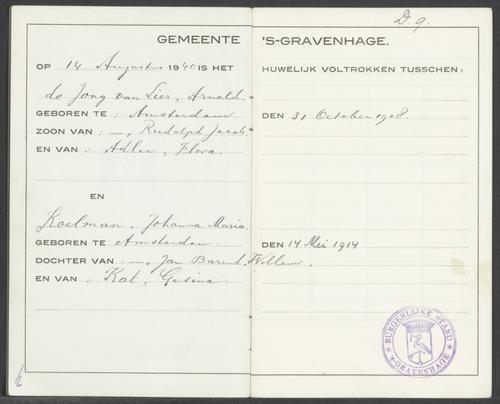 D. 9.
GEMEENTE 'S-GRAVENHAGE.
OP 14 Augustus 1940 IS HET HUWELIJK VOLTROKKEN TUSSCHEN:
de Jong van Lier, Arnold.
GEBOREN TE : Amsterdam DEN 31 October 1908.
ZOON VAN : —, Rudolph Jacob.
EN VAN : Adler, Flora.
EN
Koelman, Johanna Maria.
GEBOREN TE Amsterdam. DEN 14 Mei 1914
DOCHTER VAN : —, Jan Barend Willem.
EN VAN : Kat, Gesina
BURGERLIJKE STAND
'S-GRAVENHAGE